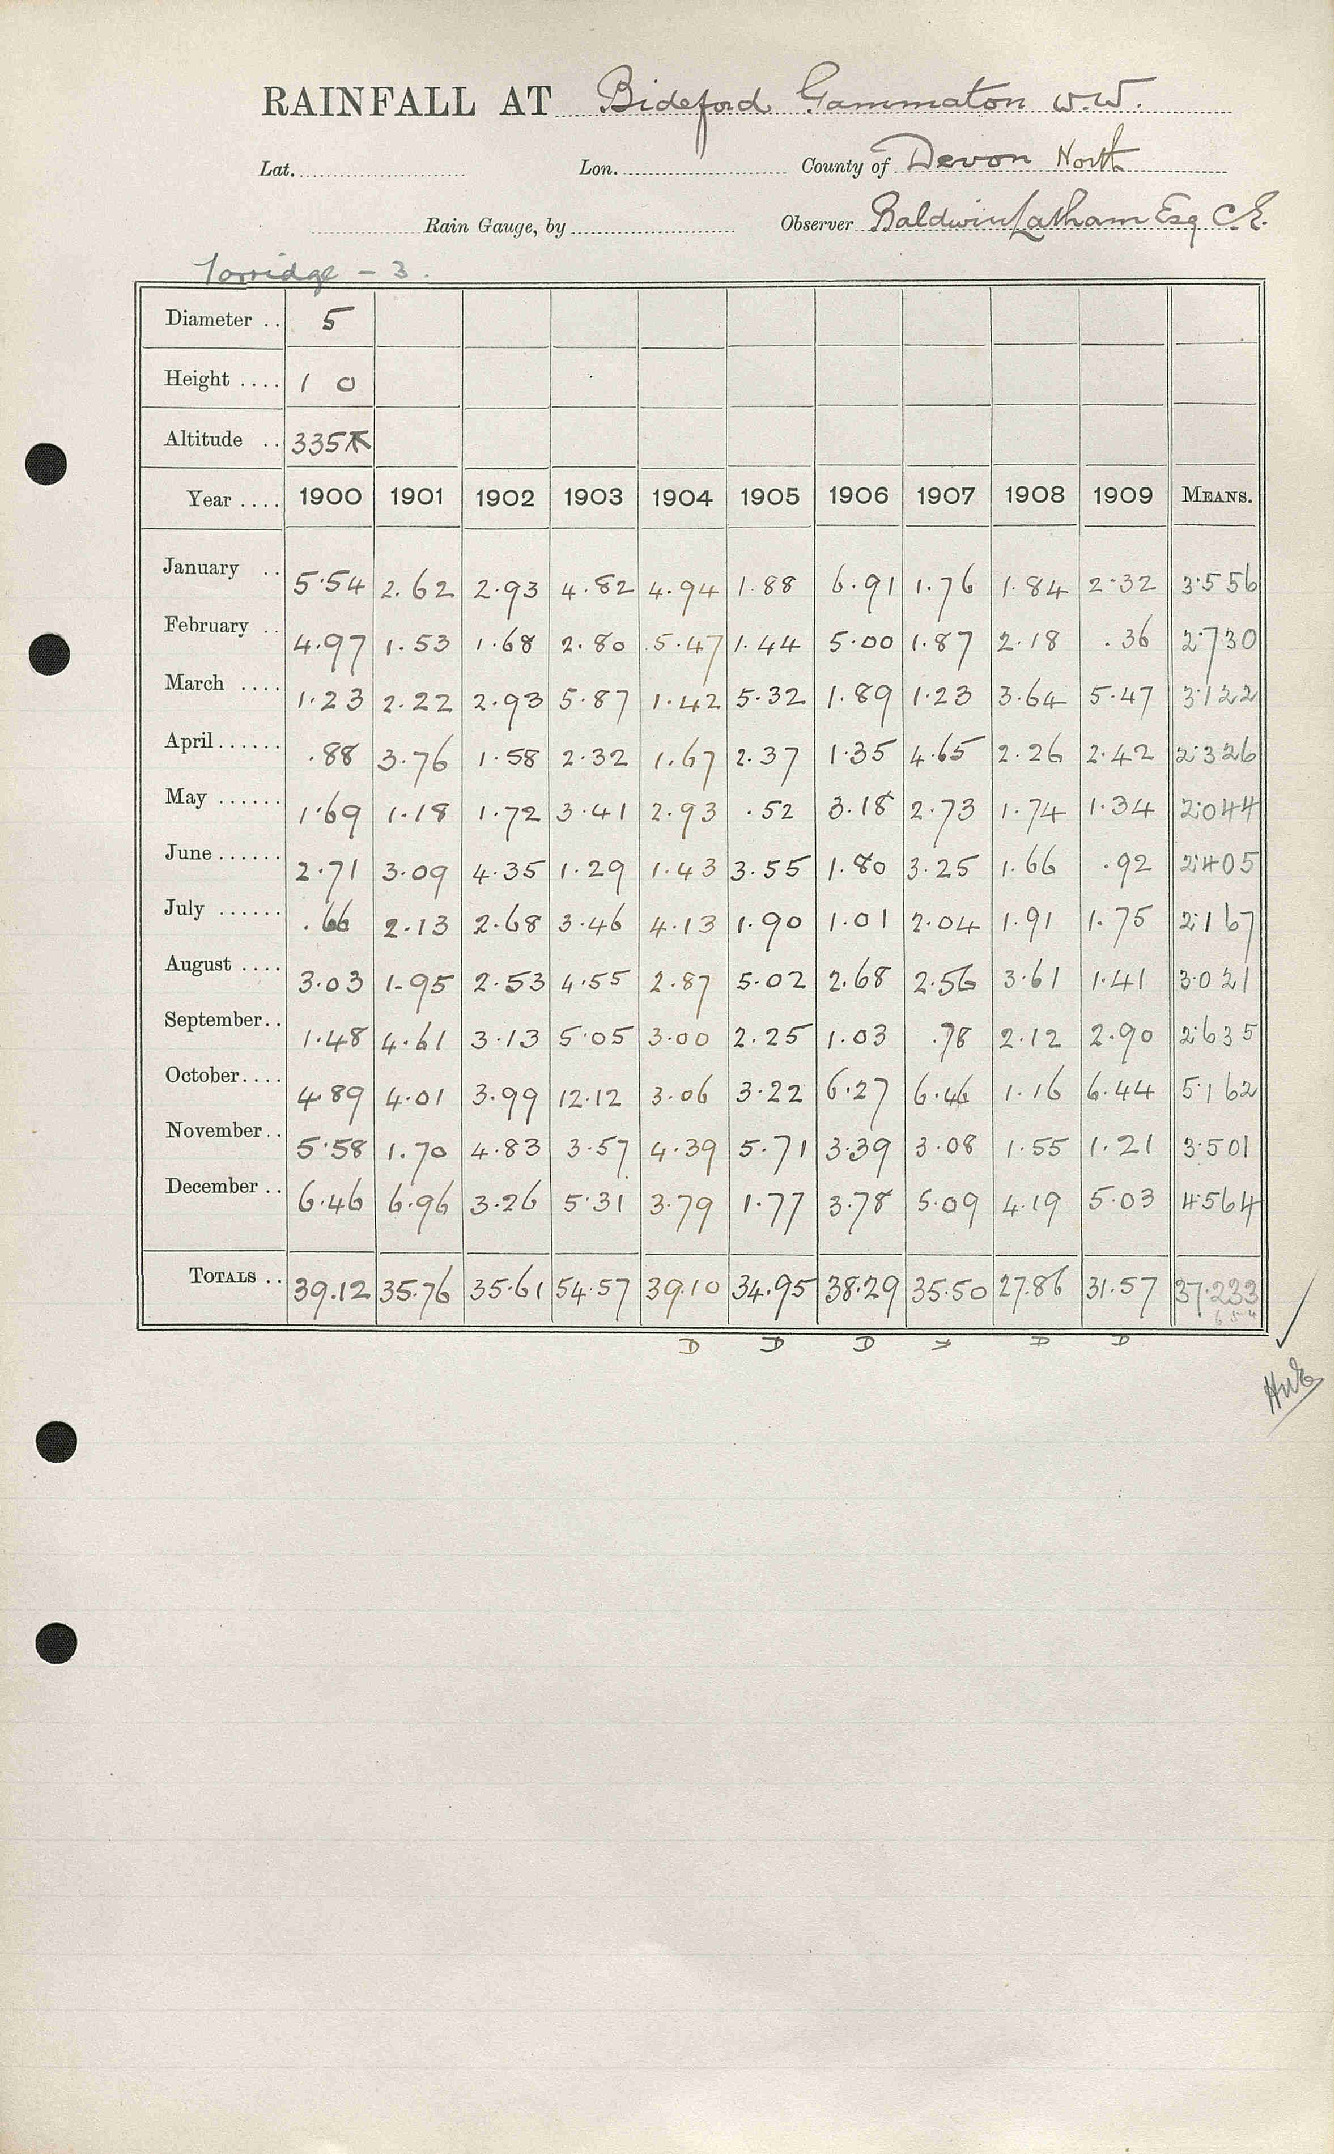 RAINFALL AT Bideford Gammaton W.W.
Lat. Lon. County of Devon North
Rain Gauge, by Observer Baldwin Latham Esq C.E.
Torridge - 3.
Diameter .. 5
Height .... 1 0
Altitude .. 335
Year .... 1900 1901 1902 1903 1904 1905 1906 1907 1908 1909 MEANS.
January .. 5.54 2.62 2.93 4.82 4.94 1.88 6.91 1.76 1.84 2.32 3.556
February .. 4.97 1.53 1.68 2.80 5.47 1.44 5.00 1.87 2.18 .36 2.730
March .... 1.23 2.22 2.93 5.87 1.42 5.32 1.89 1.23 3.64 5.47 3.122
April ...... .88 3.76 1.58 2.32 1.67 2.37 1.35 4.65 2.26 2.42 2.326
May ...... 1.69 1.18 1.72 3.41 2.93 .52 3.18 2.73 1.74 1.34 2.044
June ...... 2.71 3.09 4.35 1.29 1.43 3.55 1.80 3.25 1.66 .92 2.405
July ...... .66 2.13 2.68 3.46 4.13 1.90 1.01 2.04 1.91 1.75 2.167
August .... 3.03 1.95 2.53 4.55 2.87 5.02 2.68 2.56 3.61 1.41 3.021
September .. 1.48 4.61 3.13 5.05 3.00 2.25 1.03 .78 2.12 2.90 2.635
October .... 4.89 4.01 3.99 12.12 3.06 3.22 6.27 6.46 1.16 6.44 5.162
November .. 5.58 1.70 4.83 3.57 4.39 5.71 3.39 3.08 1.55 1.21 3.501
December .. 6.46 6.96 3.26 5.31 3.79 1.77 3.78 5.09 4.19 5.03 4.564
TOTALS .. 39.12 35.76 35.61 54.57 39.10 34.95 38.29 35.50 27.86 31.57 37.233
D D D D D